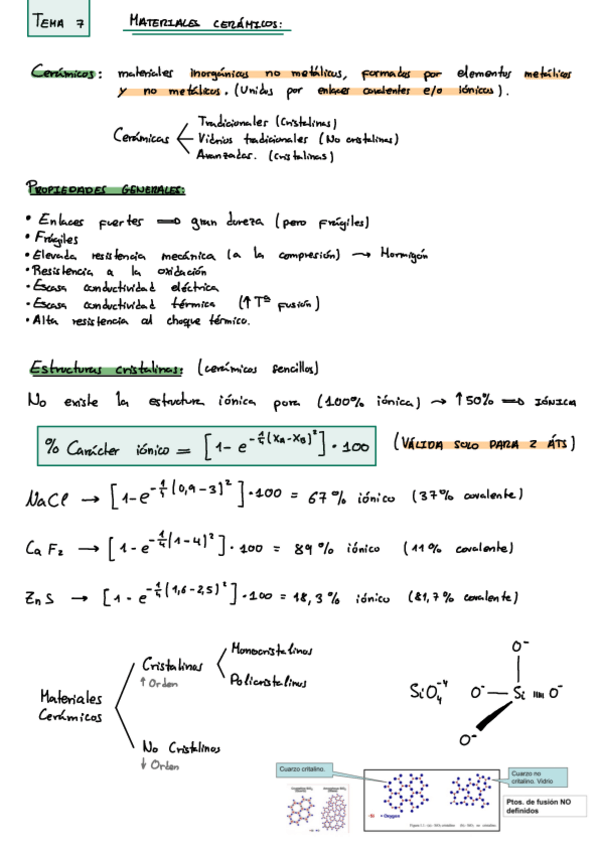 TEMA 7
MATERIALES CERÁMICOS:
Cerámicos: materiales inorgánicos no metálicos, formados por elementos metálicos
y no metálicos. (Unidos por enlaces covalentes e/o iónicos).
Cerámicas
Tradicionales (Cristalinas)
Vidrios tradicionales (No cristalinas)
Avanzadas. (Cristalinas)
PROPIEDADES GENERALES:
• Enlaces fuertes ⟹ gran dureza (pero frágiles)
• Frágiles
• Elevada resistencia mecánica (a la compresión) → Hormigón
• Resistencia a la oxidación
• Escasa conductividad eléctrica
• Escasa conductividad térmica (↑Tª fusión)
• Alta resistencia al choque térmico.
Estructuras cristalinas: (cerámicos sencillos)
No existe la estructura iónica pura (100% iónica) → ↑50% ⟹ IÓNICA
% Carácter iónico = [1- e^-1/4(XA-XB)²] · 100 (VÁLIDA SOLO PARA 2 ÁTS)
NaCl → [1-e^-1/4(0,9-3)²] · 100 = 67% iónico (37% covalente)
CaF2 → [1-e^-1/4(1-4)²] · 100 = 89% iónico (11% covalente)
ZnS → [1-e^-1/4(1,6-2,5)²] · 100 = 18,3% iónico (81,7% covalente)
Materiales
Cerámicos
Cristalinos
↑ Orden
Monocristalinos
Policristalinos
No Cristalinos
↓ Orden
SiO4^-4
O-
O- Si O-
O-
Cuarzo critalino.
Cuarzo no
critalino. Vidrio
Ptos. de fusión NO
definidos
•Si
= Oxygen